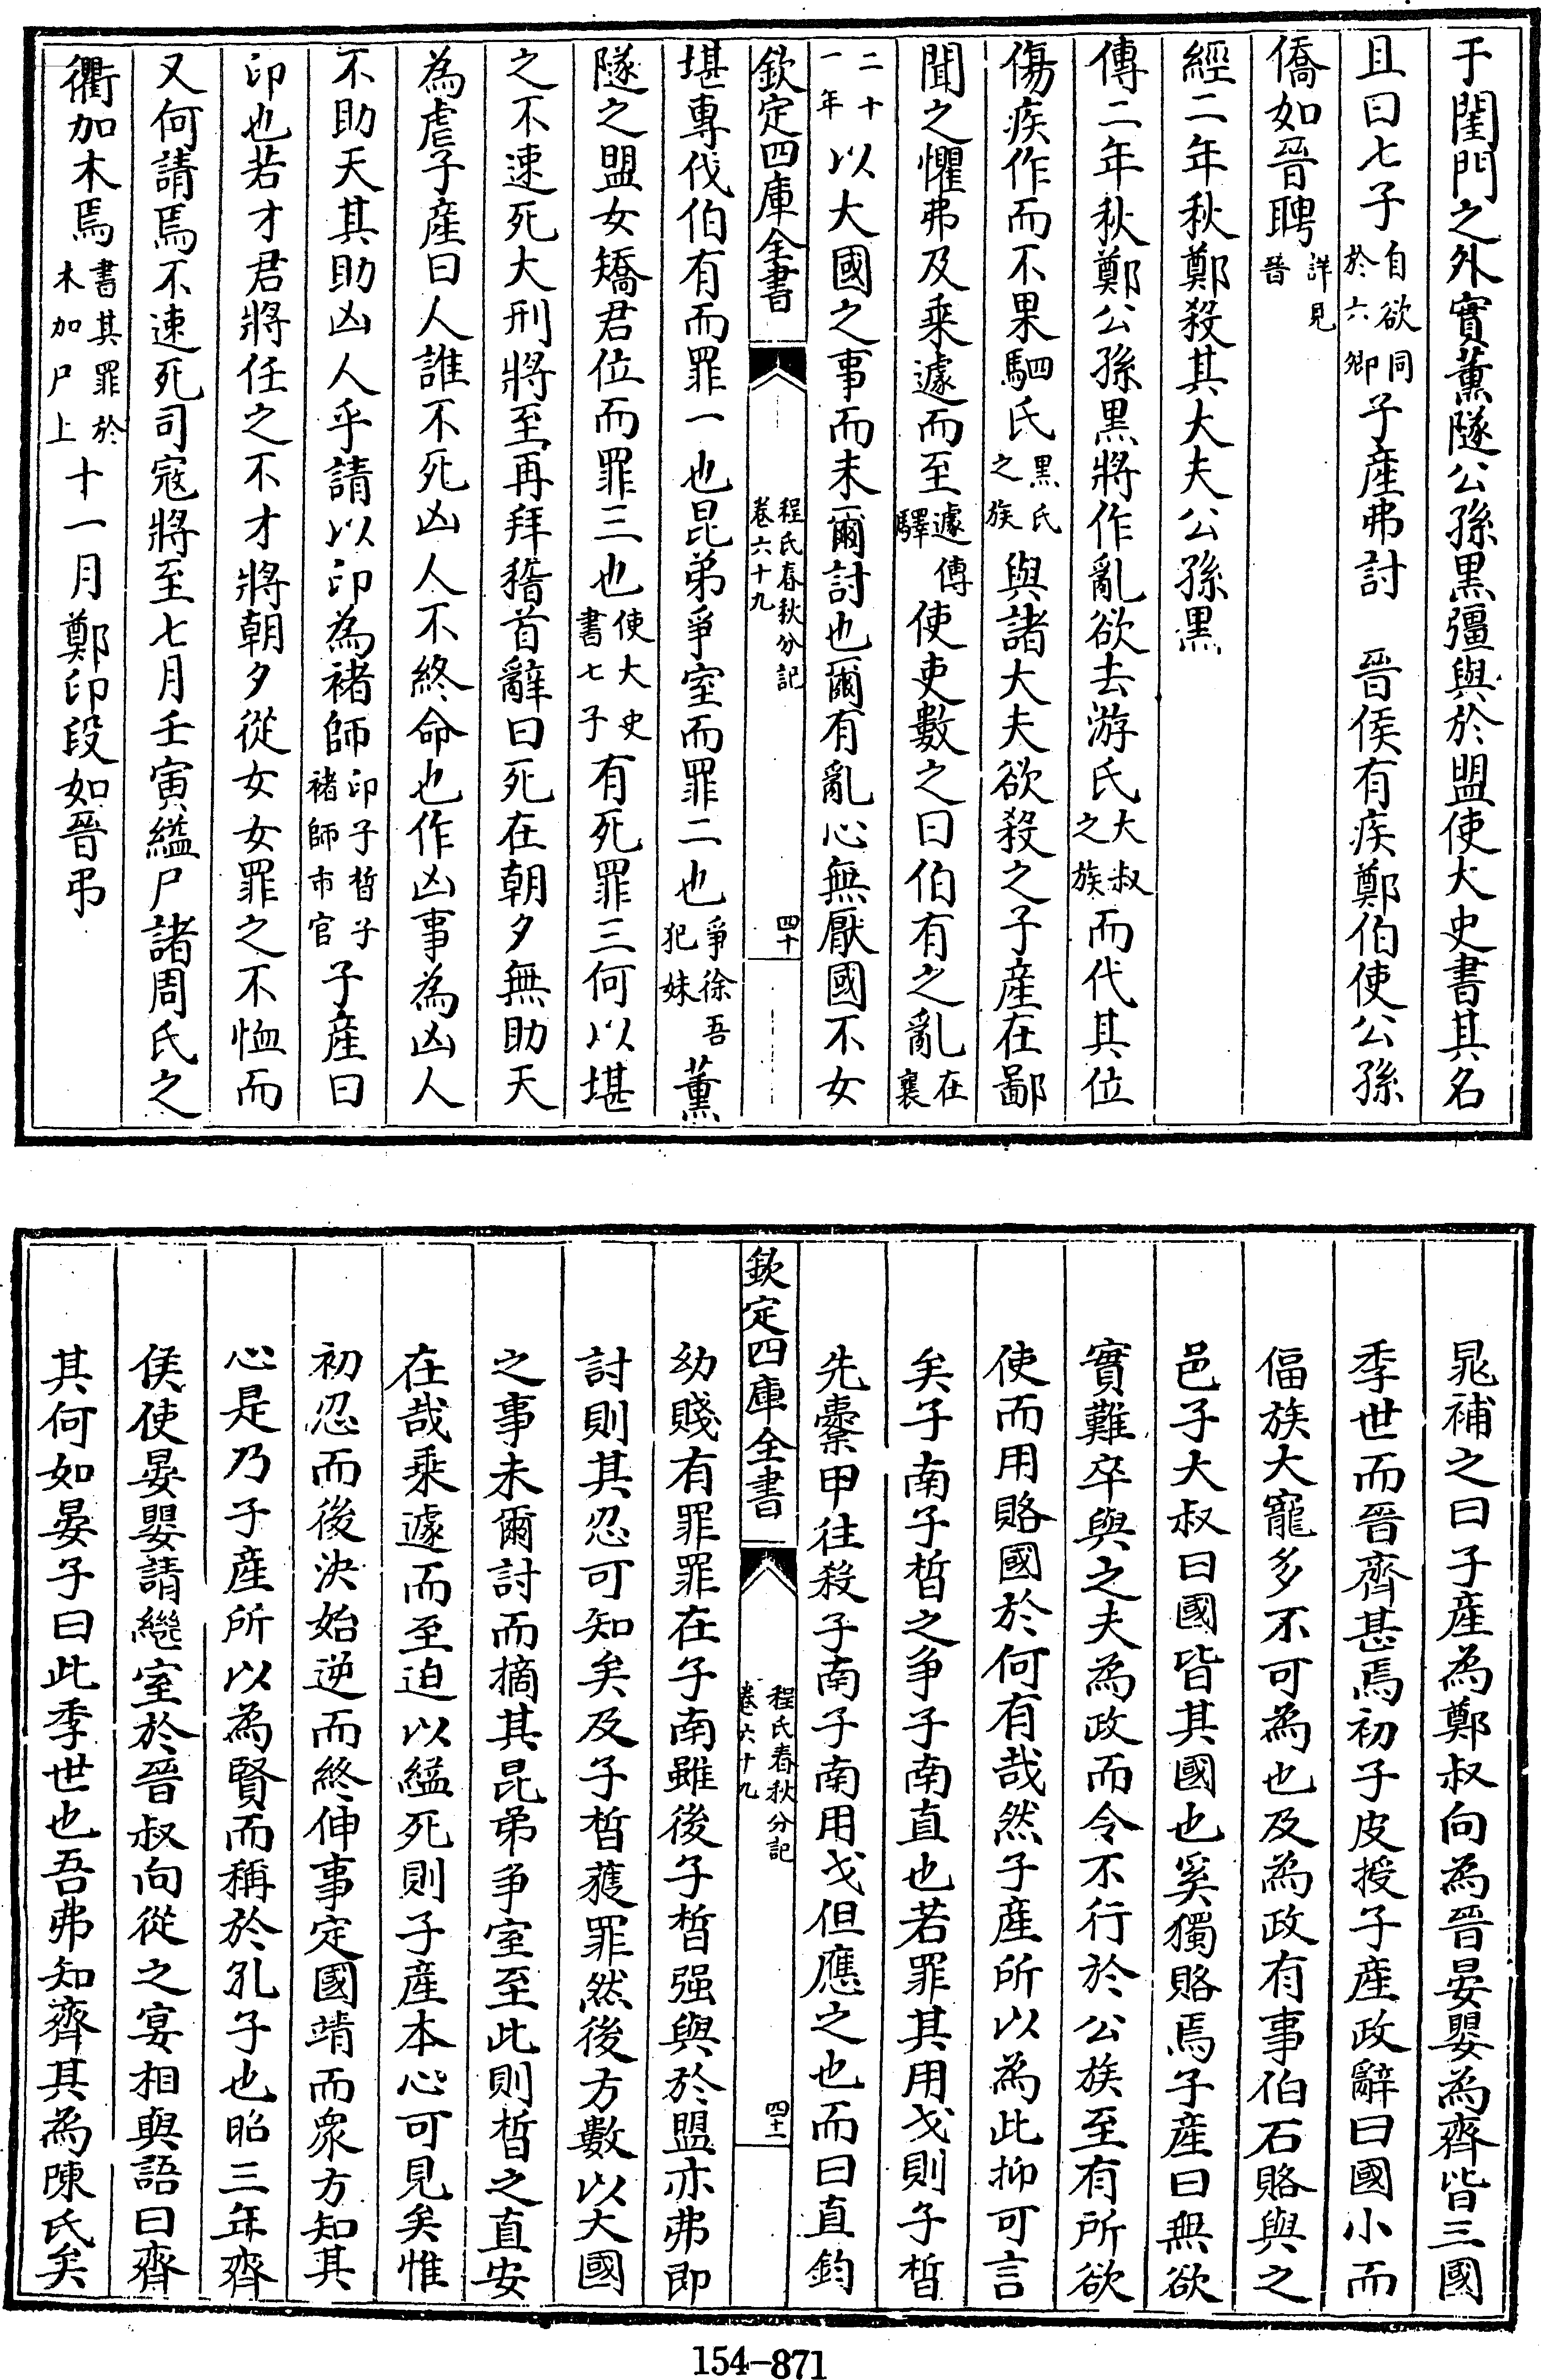 于閨門之外實薰隧公孫黒彊與於盟使大史書其名
且曰七子自欲同於六卿子産弗討　晉侯有疾鄭伯使公孫
僑如晉聘詳見晉
經二年秋鄭殺其大夫公孫黒
傳二年秋鄭公孫黒將作亂欲去游氏大叔之族而代其位
傷疾作而不果駟氏黒氏之族與諸大夫欲殺之子産在鄙
聞之懼弗及乗遽而至遽傳驛使吏數之曰伯有之亂在襄
二十一年以大國之事而未爾討也爾有亂心無厭國不女
欽定四庫全書　程氏春秋分記卷六十九　四十
堪專伐伯有而罪一也昆弟爭室而罪二也爭徐吾犯妹薰
隧之盟女矯君位而罪三也使大史書七子有死罪三何以堪
之不速死大刑將至再拜稽首辭曰死在朝夕無助天
為虐子産曰人誰不死凶人不終命也作凶事為凶人
不助天其助凶人乎請以印為褚師印子晳子褚師市官子産曰
印也若才君將任之不才將朝夕從女女罪之不恤而
又何請焉不速死司寇將至七月壬寅縊尸諸周氏之
衢加木焉書其罪於木加尸上十一月鄭印段如晉弔
晁補之曰子産為鄭叔向為晉晏嬰為齊皆三國
季世而晉齊甚焉初子皮授子産政辭曰國小而
偪族大寵多不可為也及為政有事伯石賂與之
邑子大叔曰國皆其國也奚獨賂焉子産曰無欲
實難卒與之夫為政而令不行於公族至有所欲
使而用賂國於何有哉然子産所以為此抑可言
矣子南子晳之争子南直也若罪其用戈則子晳
先櫜甲往殺子南子南用戈但應之也而曰直鈞
欽定四庫全書　程氏春秋分記卷六十九　四十一
幼賤有罪罪在子南雖後子晳强與於盟亦弗即
討則其忍可知矣及子晳蒦罪然後方數以大國
之事未爾討而摘其昆弟争室至此則晳之直安
在哉乗遽而至迫以縊死則子産本心可見矣惟
初忍而後決始逆而終伸事定國靖而衆方知其
心是乃子産所以為賢而稱於孔子也昭三年齊
侯使晏嬰請繼室於晉叔向從之宴相與語曰齊
其何如晏子曰此季世也吾弗知齊其為陳氏矣
154-871